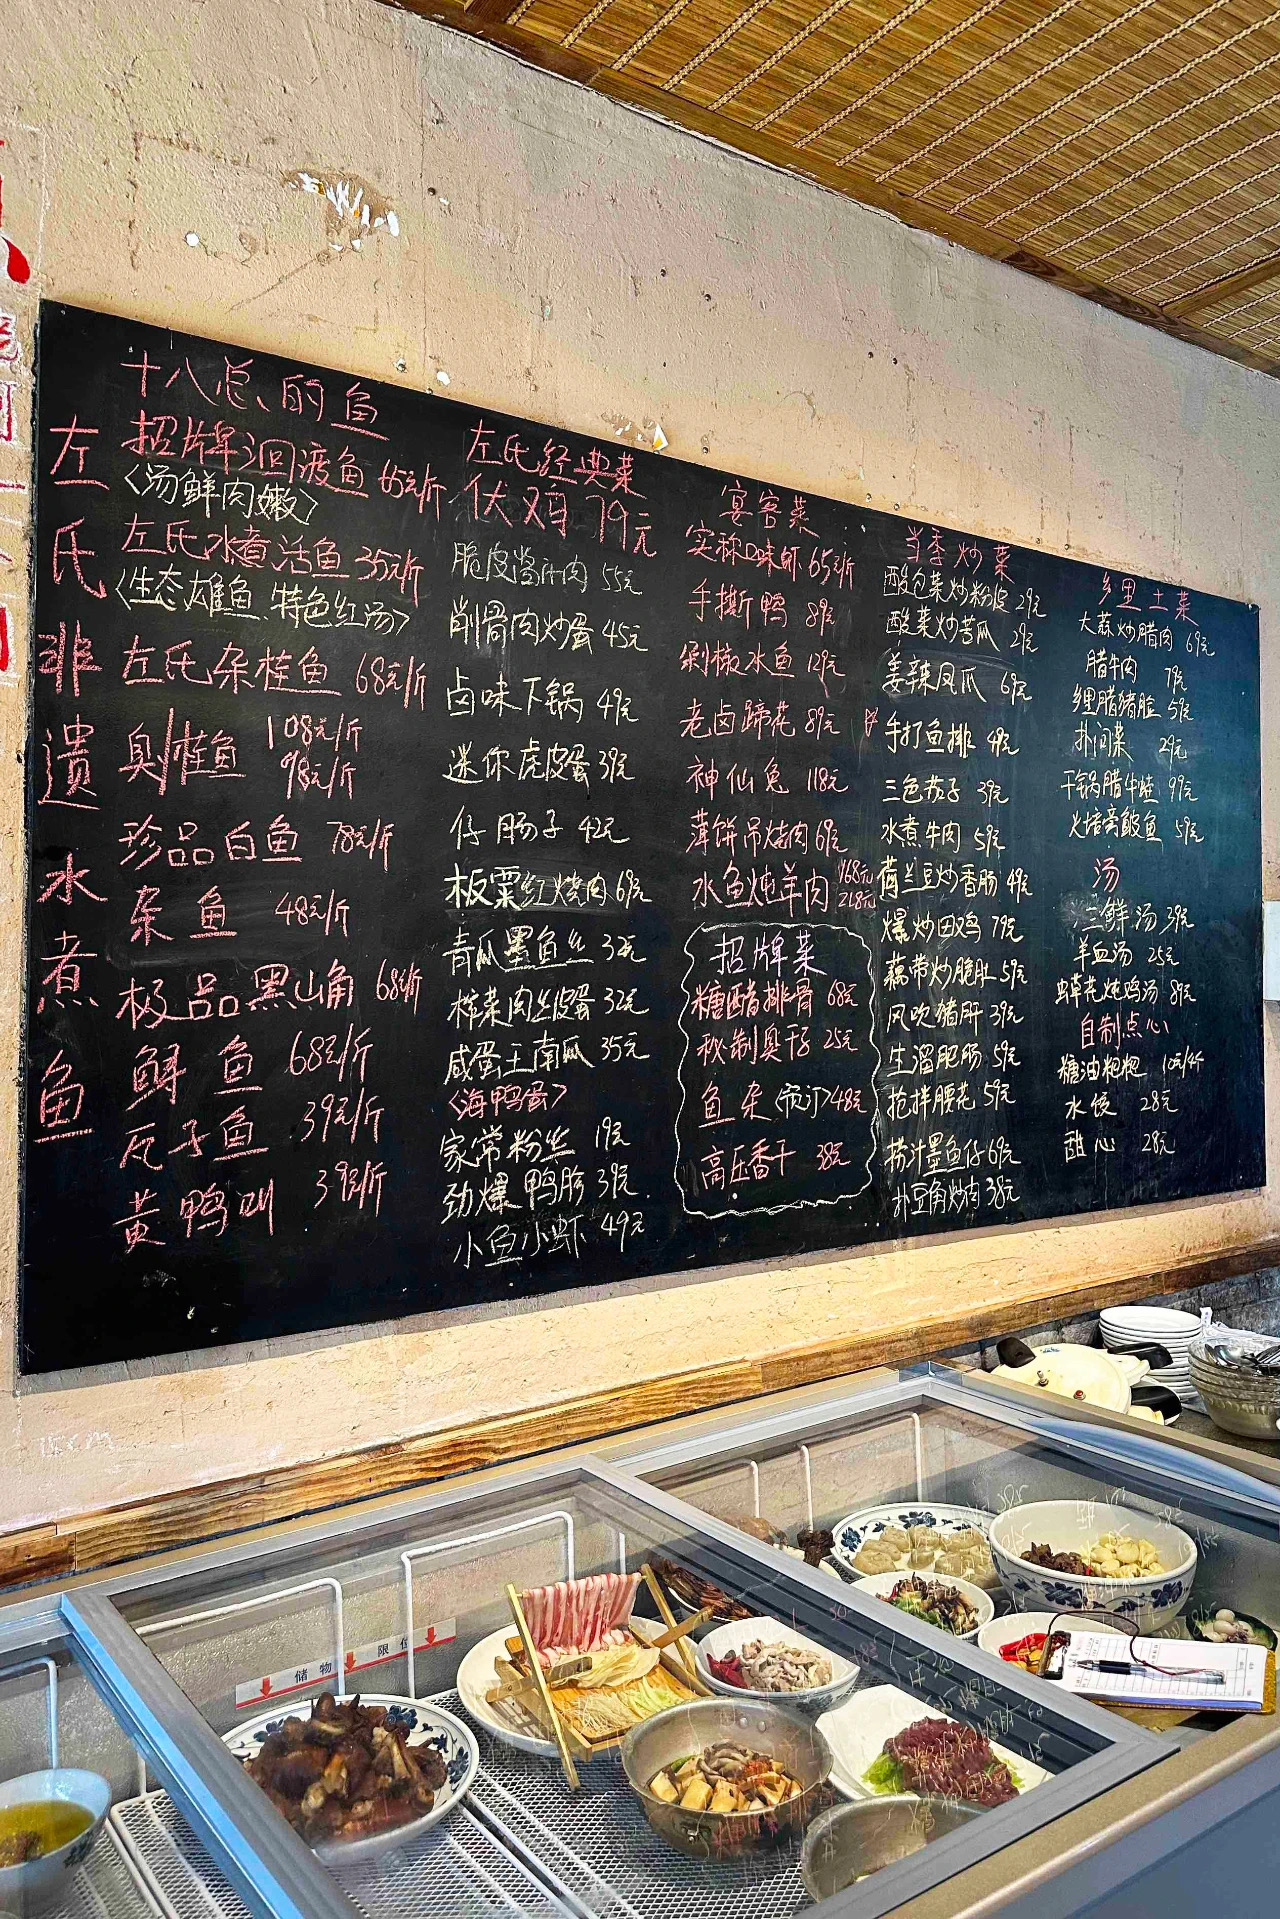 左氏非遗水煮鱼
十八总的鱼
招牌三回渡鱼 65元/斤
〈汤鲜肉嫩〉
左氏水煮活鱼 35元/斤
〈生态雄鱼.特色红汤〉
左氏杂桂鱼 68元/斤
臭桂鱼 108元/斤
98元/斤
珍品白鱼 78元/斤
杂鱼 48元/斤
极品黑山角 68元/斤
鲟鱼 68元/斤
瓦子鱼 39元/斤
黄鸭叫 39元/斤
左氏经典菜
伏鸡 79元
脆皮酱牛肉 55元
削骨肉炒蛋 45元
卤味下锅 49元
迷你虎皮蛋 39元
仔肠子 42元
板粟红烧肉 69元
青瓜墨鱼丝 32元
榨菜肉丝皮蛋 32元
咸蛋王南瓜 35元
〈海鸭蛋〉
家常粉丝 19元
劲爆鸭胗 39元
小鱼小虾 49元
宴客菜
实称口味虾 65元/斤
手撕鸭 89元
剁椒水鱼 129元
老卤蹄花 89元
神仙兔 118元
薄饼吊烧肉 69元
水鱼炖羊肉 168元
218元
招牌菜
糖醋排骨 68元
秘制臭干子 25元
鱼杂〈预订〉48元
高压香干 38元
当季炒菜
酸包菜炒粉皮 29元
酸菜炒苦瓜 29元
姜辣凤爪 69元
手打鱼排 49元
三色茄子 39元
水煮牛肉 59元
荷兰豆炒香肠 49元
爆炒田鸡 79元
藕带炒脆肚 59元
风吹猪肝 39元
生溜肥肠 59元
抢拌腰花 59元
捞汁墨鱼仔 69元
扑豆角炒肉 38元
乡里土菜
大蒜炒腊肉 69元
腊牛肉 79元
乡里腊猪脸 59元
扑闷菜 29元
干锅腊牛蛙 99元
火培翘鲅鱼 59元
汤
三鲜汤 39元
羊血汤 25元
虫草花炖鸡汤 89元
自制点心
糖油粑粑 10元/4个
水饺 28元
甜心 28元
储物
限位